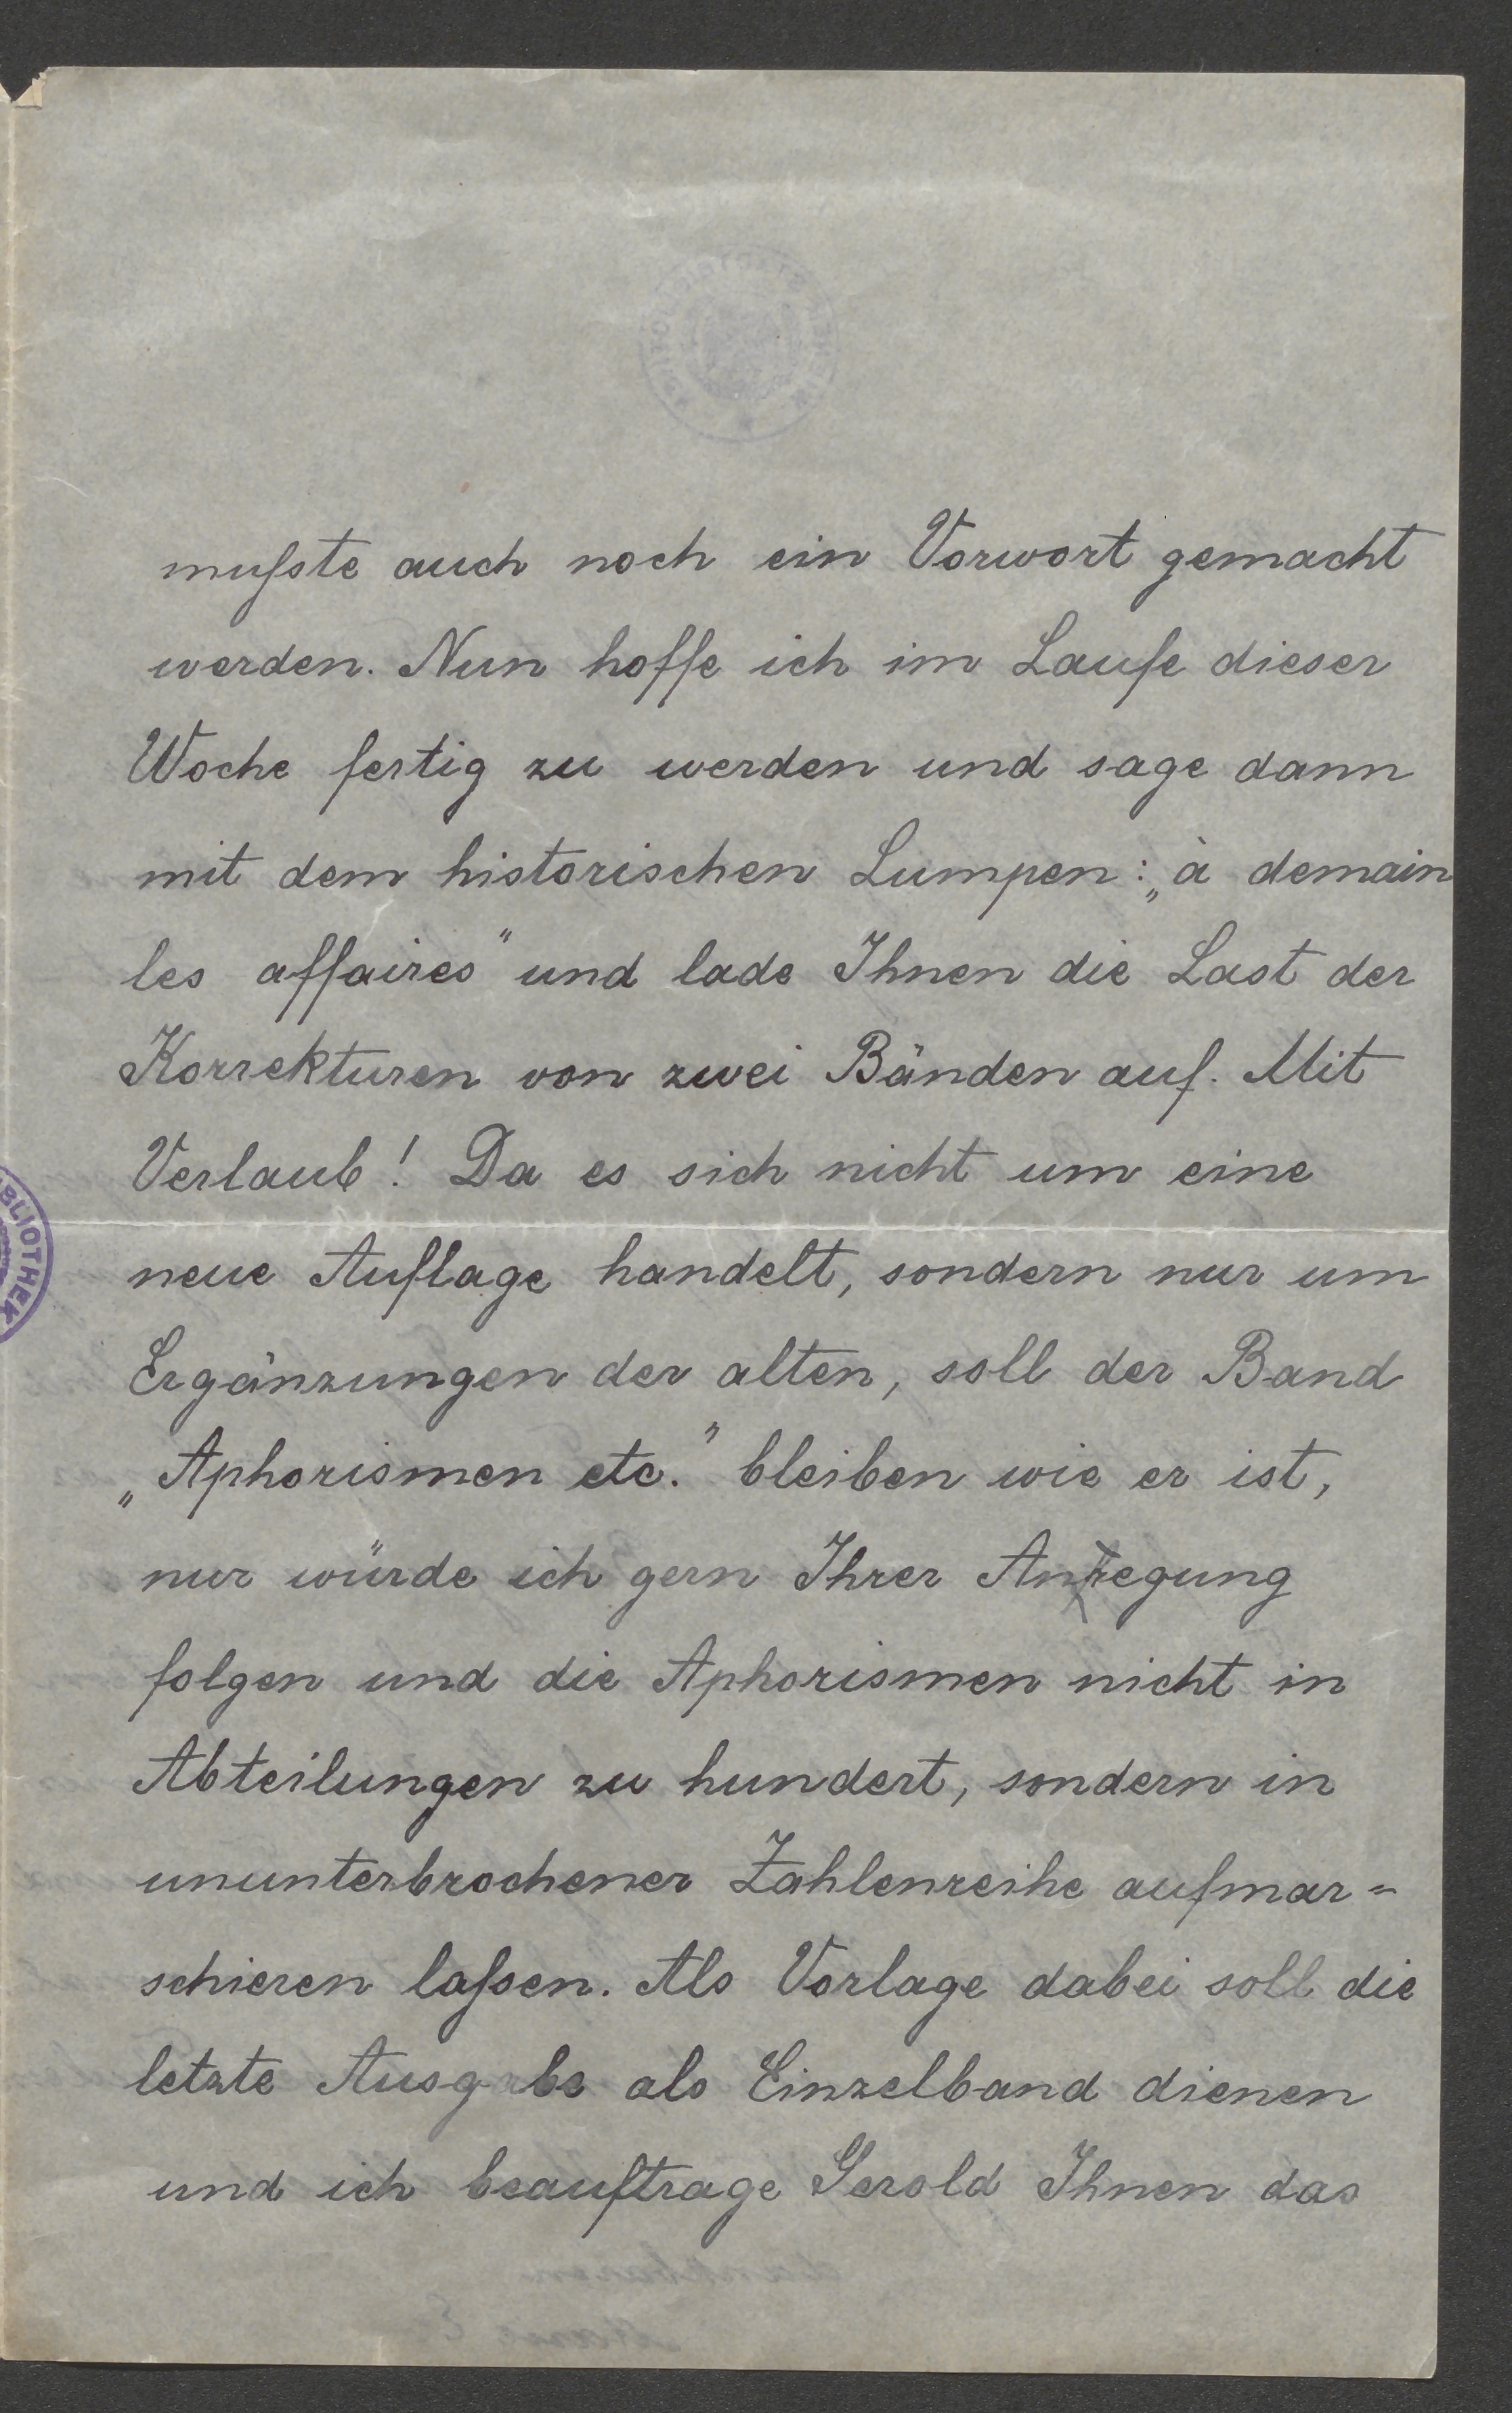 mußte auch noch ein Vorwort gemacht
werden. Nun hoffe ich im Laufe dieser
Woche fertig zu werden und sage dann
mit dem historischen Lumpen: „à demain
les affaires" und lade Ihnen die Last der
Korrekturen von zwei Bänden auf. Mit
Verlaub! Da es sich nicht um eine
neue Auflage handelt, sondern nur um
Ergänzungen der alten, soll der Band
„Aphorismen etc." bleiben wie er ist,
nur würde ich gern Ihrer Anregung
folgen und die Aphorismen nicht in
Abteilungen zu hundert, sondern in
ununterbrochener Zahlenreihe aufmar=
schieren laßen. Als Vorlage dabei soll die
letzte Ausgabe als Einzelband dienen
und ich beauftrage Gerold Ihnen das
BLIOTHEK